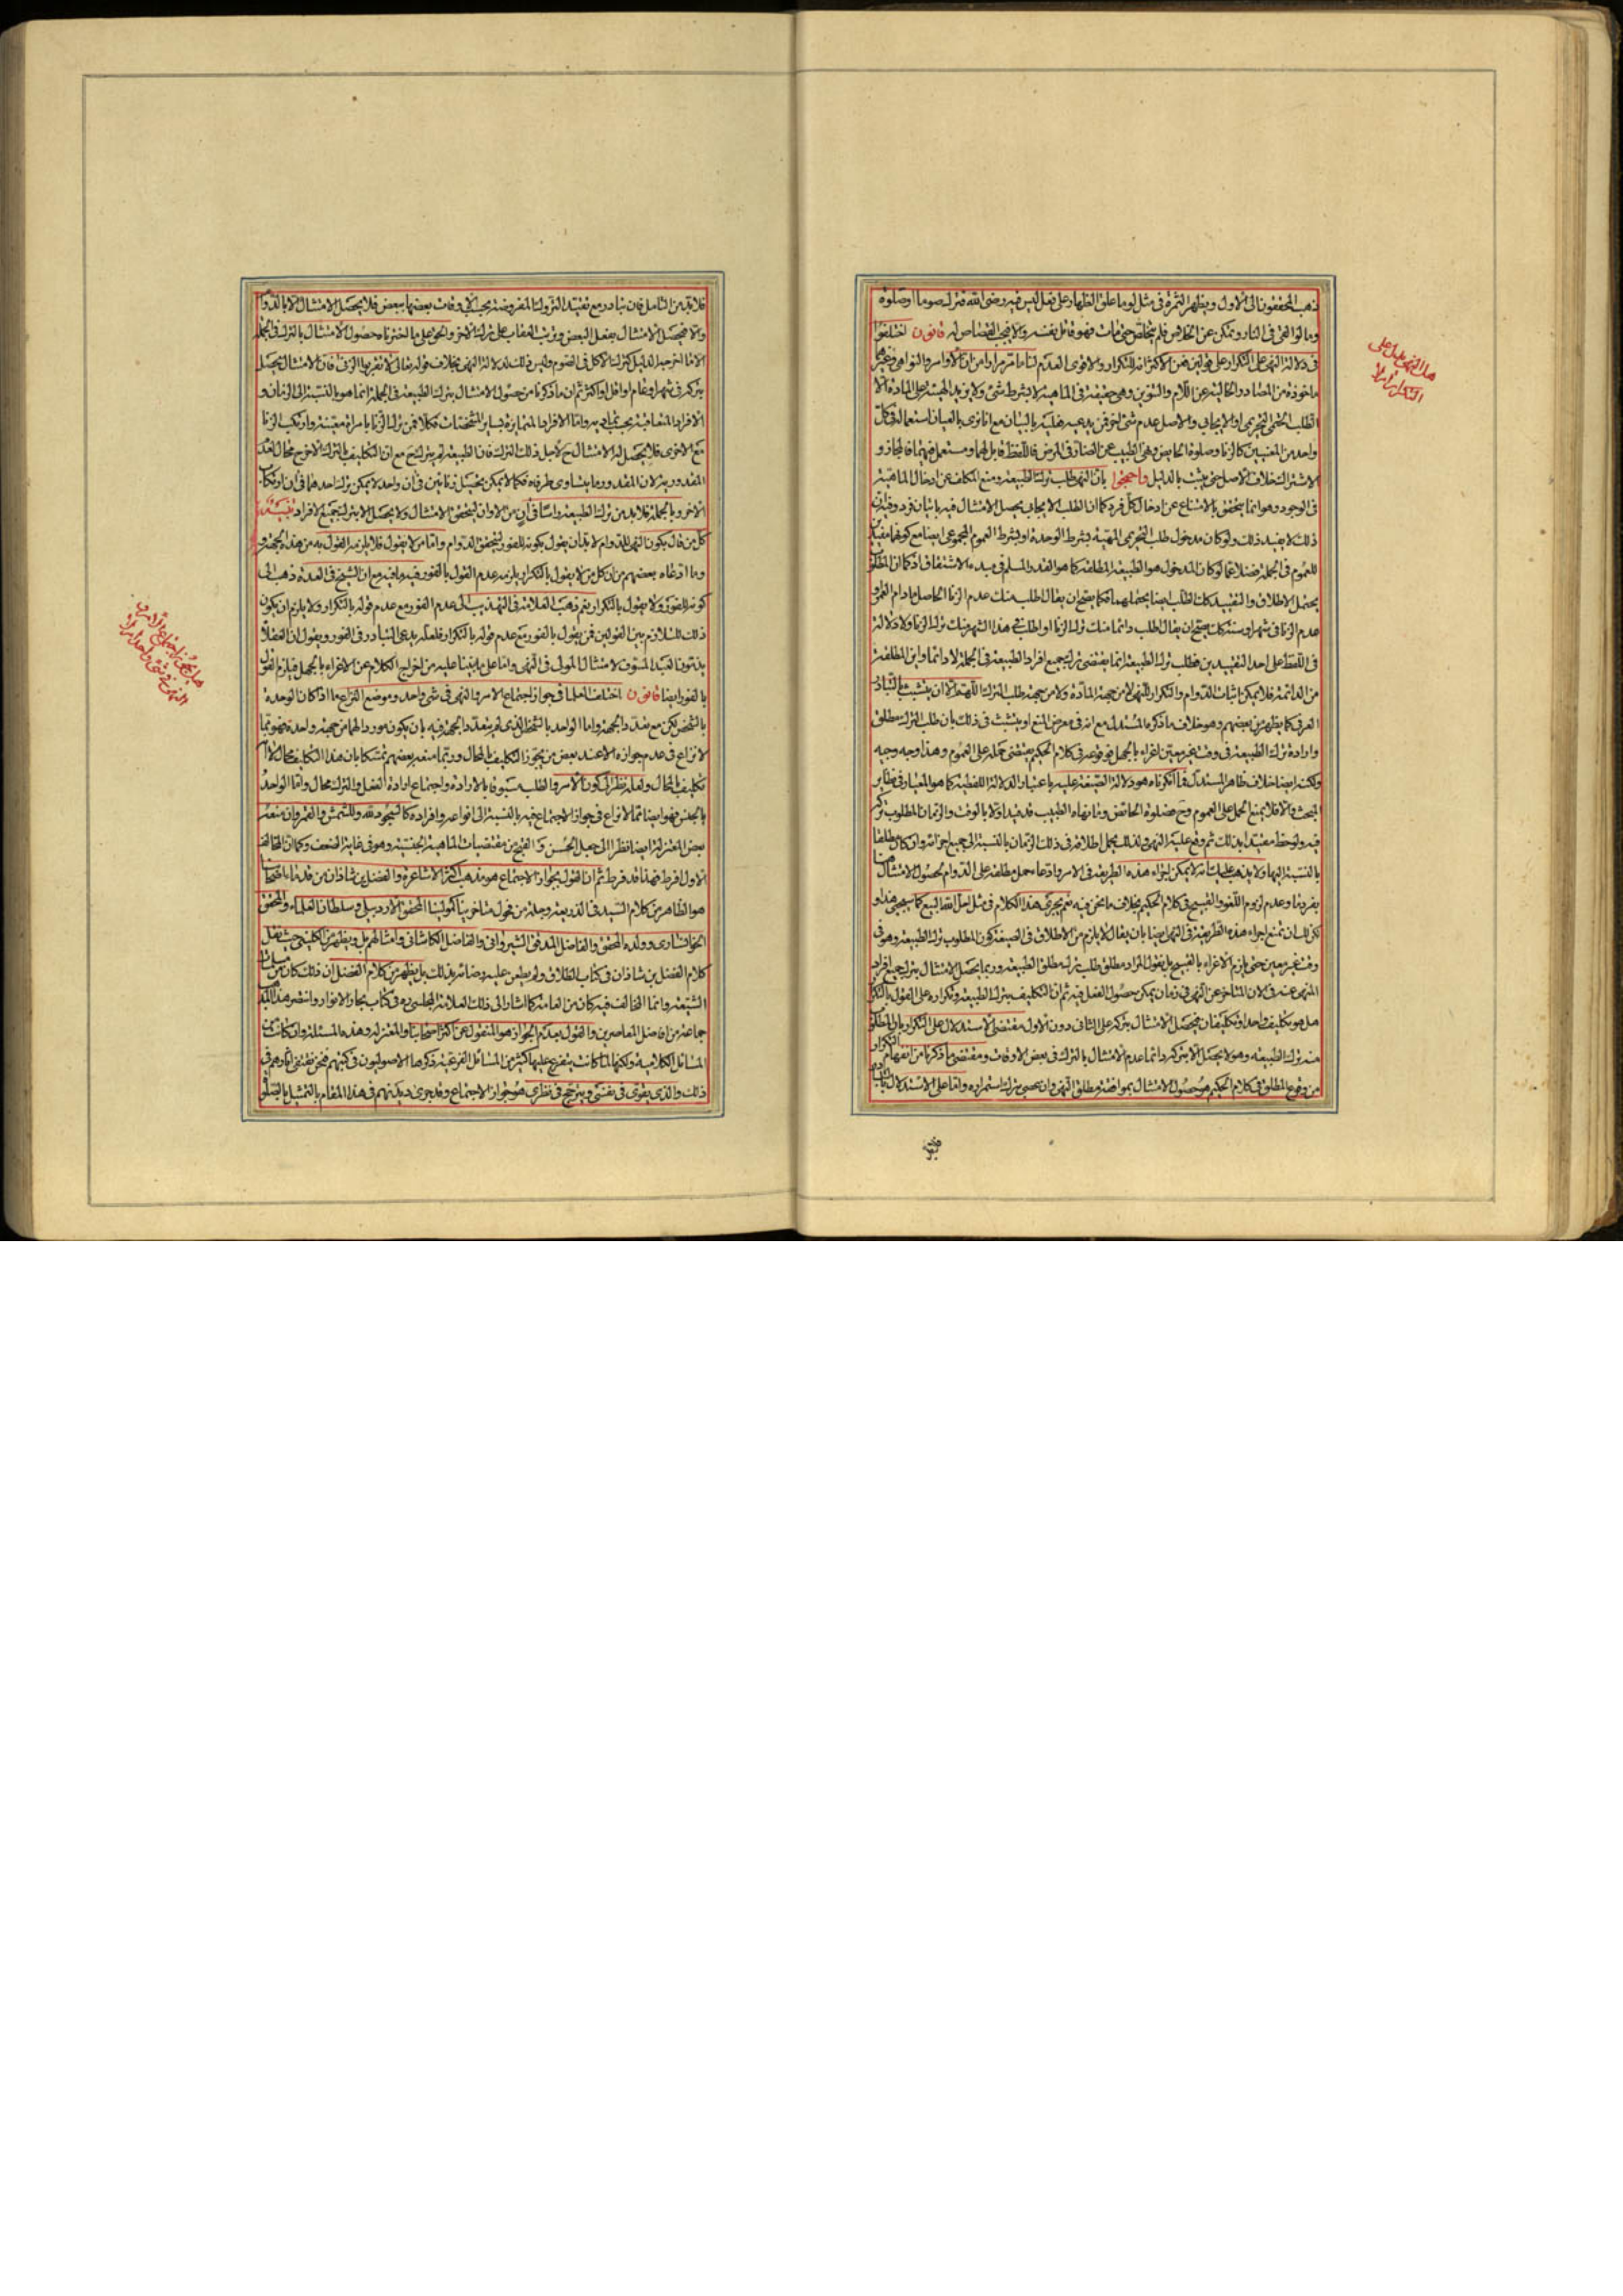 ذهب المحققون الى الاول ويظهر الثمرة فى مثل لو ما علق الظهار على فعل ليس فيه رضى الله فترك صوما او صلوة
وما لو القى فى النار وتمكن عن الخلاص فلم يتخلص حتى مات فهو قاتل نفسه ولا يجب القصاص له قانون اختلفوا
فى دلالة النهى على التكرار على قولين فعن الاكثر انه للتكرار والاقوى العدم لنا ما مر مرارا من ان الاوامر والنواهى وغيرهما
ماخوذة من المصادر الخالية عن اللام والتنوين وهى حقيقة فى الماهية لا بشرط شئ ولا يزيد الهيئة على المادة الا
الطلب الحتمى التحريمى او الايجابى والاصل عدم شئ اخر فمن يدعيه فعليه بالبيان مع انا نرى بالعيان استعماله فى كل
واحد من المعنيين كالزنا وصلوة الحائض ونهى الطبيب عن الضار فى المرض فاللفظ قابل لهما ومستعمل فيهما فالمجاز و
الاشتراك خلاف الاصل حتى يثبت بالدليل واحتجوا بان النهى طلب ترك الطبيعة ومنع المكلف عن ادخال الماهية
فى الوجود وهو انما يتحقق بالامتناع عن ادخال كل فرد كما ان الطلب الايجابى يحصل الامتثال فيه باتيان فرد وفيه ان
ذلك لا يفيد ذلك ولو كان مدخول طلب التحريمى المهية بشرط الوحدة او بشرط العموم المجموعى ايضا مع كونها مفيدة
للعموم فى الجملة فضلا عما لو كان المدخول هو الطبيعة المطلقة كما هو القدر المسلم فى مبدء الاشتقاق اذ كما ان المطلوب
يحتمل الاطلاق والتقييد كك الطلب ايضا يحتملهما فكما يصح ان يقال اطلب منك عدم الزنا الحاصل ما دام العمر او
عدم الزنا فى شهر او سنة كك يصح ان يقال اطلب دائما منك ترك الزنا او اطلب فى هذا الشهر منك ترك الزنا ولا دلالة
فى اللفظ على احد التقييدين فطلب ترك الطبيعة انما يقتضى ترك جميع افراد الطبيعة فى الجملة لا دائما واين المطلقة
من الدائمة فلا يمكن اثبات الدوام والتكرار للنهى لا من جهة المادة ولا من جهة طلب الترك اللهم الا ان يتشبث بالتبادر
العرفى كما يظهر من بعضهم وهو خلاف ما ذكره المستدل مع انه فى معرض المنع او يتشبث فى ذلك بان طلب الترك مطلق
وارادة ترك الطبيعة فى وقت غير معين اغراء بالجهل فوقوعه فى كلام الحكيم يقتضى حمله على العموم وهذا وجه وجيه
ولكنه ايضا خلاف ظاهر المستدل فما انكرناه هو دلالة الصيغة عليه باعتبار الدلالة اللفظية كما هو المعيار فى نظاير
المبحث والا فلا يمنع الحمل على العموم وح فصلوة الحائض وما نهاه الطبيب قد قيد اولا بالوقت والزمان المطلوب تركه
فيه ولوحظ مقيدا بذلك ثم وقع عليه النهى ولذلك يحمل اطلاقه فى ذلك الزمان بالنسبة الى جميع اجزائه وان كان مطلقا
بالنسبة اليها ولا يذهب عليك انه لا يمكن اجراء هذه الطريقة فى الامر وادعاء حمل مطلقه على الدوام لحصول الامتثال هنا
بفرد ما وعدم لزوم اللغو والقبيح فى كلام الحكيم بخلاف ما نحن فيه نعم يجرى هذا الكلام فى مثل احل الله البيع كما سيجئ هذا و
لكن لك ان تمنع اجراء هذه الطريقة فى النهى ايضا بان يقال لا يلزم من الاطلاق فى الصيغة كون المطلوب ترك الطبيعة وهو فى
وقت غير معين حتى يلزم الاغراء بالقبيح بل يقول المراد مطلق طلب ترك مطلق الطبيعة وربما يحصل الامتثال بترك جميع افراد
المنهى عنه فى الان المتاخر عن النهى فى زمان يمكن حصول الفعل فيه ثم ان التكليف بترك الطبيعة وتكراره على القول بالتكرار
هل هو تكليف واحد او تكليفان فيحصل الامتثال بتركه على الثانى دون الاول مقتضى الاستدلال على التكرار بان المطلوب
منه ترك الطبيعة وهو لا يحصل الا بتركه دائما عدم الامتثال بالترك فى بعض الاوقات ومقتضى ما ذكرنا من انفهام التكرار
من وقوع المطلق فى كلام الحكيم هو حصول الامتثال بموافقة مطلق النهى وان عصى بترك استمراره واما على الاستدلال بالتبادر
هل النهى يدل على
التكرار ام لا
فلا بد من التامل فان تبادر مع تقييد التروك المفروضة بحسب الاوقات بعضها ببعض فلا يحصل الامتثال الا بالدوام
والا فيحصل الامتثال بفعل البعض ويترتب العقاب على ترك الاخر والحق على ما اخترناه حصول الامتثال بالترك فى الجملة
الا ما اخرجه الدليل كترك الاكل فى الصوم وليس ذلك لدلالة النهى بخلاف قوله تعالى لا تقربوا الزنى فان الامتثال يحصل
بتركه فى شهر او عام او اقل او اكثر ثم ان ما ذكرنا من حصول الامتثال بترك الطبيعة فى الجملة انما هو بالنسبة الى الزمان و
الافراد المتعاقبة بحسب تماديه واما الافراد المتمايزة بساير المشخصات فكلا فمن ترك الزنا بامراة معينة وارتكب الزنا
مع الاخرى فلا يحصل له الامتثال ح لاجل ذلك الترك فان الطبيعة لم يترك ح مع ان التكليف بالترك الاخر ح محال لعدم
المقدورية لان المقدور ما يتساوى طرفاه فكما لا يمكن تحصيل زنائين فى ان واحد لا يمكن ترك احدهما فى ان ارتكاب
الاخر وبالجملة فلا بد من ترك الطبيعة راسا فى آن من الاوان ليتحقق الامتثال ولا يحصل الا بترك جميع الافراد تنبيه
كل من قال بكون النهى للدوام لا بد ان يقول بكونه للفور ليتحقق الدوام واما من لا يقول فلا يلزمه القول به من هذه الجهة و
وما ادعاه بعضهم من ان كل من لا يقول بالتكرار يلزمه عدم القول بالفور فيه ما فيه مع ان الشيخ فى العدة ذهب الى
كونه للفور ولا يقول بالتكرار نعم ذهب العلامة فى التهذيب الى عدم الفور مع عدم قوله بالتكرار ولا يلزم ان يكون
ذلك للتلازم بين القولين فمن يقول بالفور مع عدم قوله بالتكرار فلعله يدعى التبادر فى الفور ويقول ان العقلاء
يذمون العبد المسوف لامتثال المولى فى النهى واما على ما بنينا عليه من اخراج الكلام عن الاغراء بالجهل فيلزم القول
بالفور ايضا قانون اختلف العلماء فى جواز اجتماع الامر والنهى فى شئ واحد وموضع النزاع ما اذا كان الوحدة
بالشخص لكن مع تعدد الجهة واما الواحد بالشخص الذى لم يتعدد الجهة فيه بان يكون موردا لهما من جهة واحدة فهو مما
لا نزاع فى عدم جوازه الا عند بعض من يجوز التكليف بالمحال وربما منعه بعضهم تمسكا بان هذا التكليف محال لا انه
تكليف بالمحال ولعله نظر الى كون الامر والطلب مسبوقا بالارادة واجتماع ارادة الفعل والترك محال واما الواحد
بالجنس فهو ايضا مما لا نزاع فى جواز الاجتماع فيه بالنسبة الى انواعه وافراده كالسجود لله وللشمس والقمر وان منعه
بعض المعتزلة ايضا نظرا الى جعل الحسن والقبح من مقتضيات الماهية الجنسية وهو فى غاية الضعف وكما ان المخالف
الاول افرط فهذا قد فرط ثم ان القول بجواز الاجتماع هو مذهب اكثر الاشاعرة والفضل بن شاذان من قدماء اصحابنا
هو الظاهر من كلام السيد فى الذريعة وجملة من فحول متاخرينا كمولينا المحقق الاردبيلى وسلطان العلماء والمحقق
الخوانسارى وولده المحقق والفاضل المدقق الشيروانى والفاضل الكاشانى وامثالهم بل ويظهر من الكلينى حيث نقل
كلام الفضل بن شاذان فى كتاب الطلاق ولم يطعن عليه رضائه بذلك بل يظهر من كلام الفضل ان ذلك كان من مسلمات
الشيعة وانما المخالف فيه كان من العامة كما اشار الى ذلك العلامة المجلسى ره فى كتاب بحار الانوار وانتصر هذا المذهب
جماعة من افاضل المعاصرين والقول بعدم الجواز هو المنقول عن اكثر اصحابنا والمعتزلة وهذه المسئلة وان كانت من
المسائل الكلامية ولكنها لما كانت يتفرع عليها كثير من المسائل الفرعية ذكرها الاصوليون فى كتبهم فنحن نقتفى اثارهم فى
ذلك والذى يقوى فى نفسى ويترجح فى نظرى هو جواز الاجتماع وقد جرى ديدنهم فى هذا المقام بالتمثيل بالصلوة
هل يجوز اجتماع الامر و
النهى فى شئ واحد ام لا